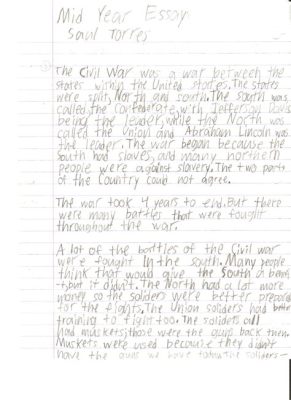 Mid Year Essay
Saul Torres
The Civil War was a war between the
states within the United stories. The states
were split, North and south. The south was
called the Confederate, with Jefferson Davis
being the leader, while the North was
called the Union and Abraham Lincoln was
the leader. The war began because the
South had slaves, and many northern
people were against slavery. The two parts
of the Country could not agree.
The war took 4 years to end. But there
were many battles that were fought
throughout the war.
A lot of the battles of the Civil war
were fought In the south. Many people
think that would give the South a
but it didn't. The North had a lot more
money so the soliders were better
for the fights. The Union soliders had better
training to fight too. The soliders all
had muskets; those were the guns back then.
Muskets were used because they didn't
have the guns we have today. The soliders